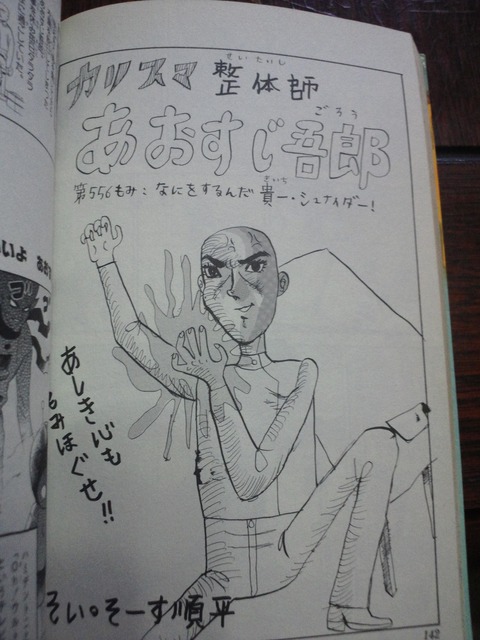 カリスマ 整体師
せいたいし
あおすじ吾郎
ごろう
第556もみ：なにをするんだ貴一・シュナイダー！
きいち
あしき心も
もみほぐせ!!
そい。そーす順平
142